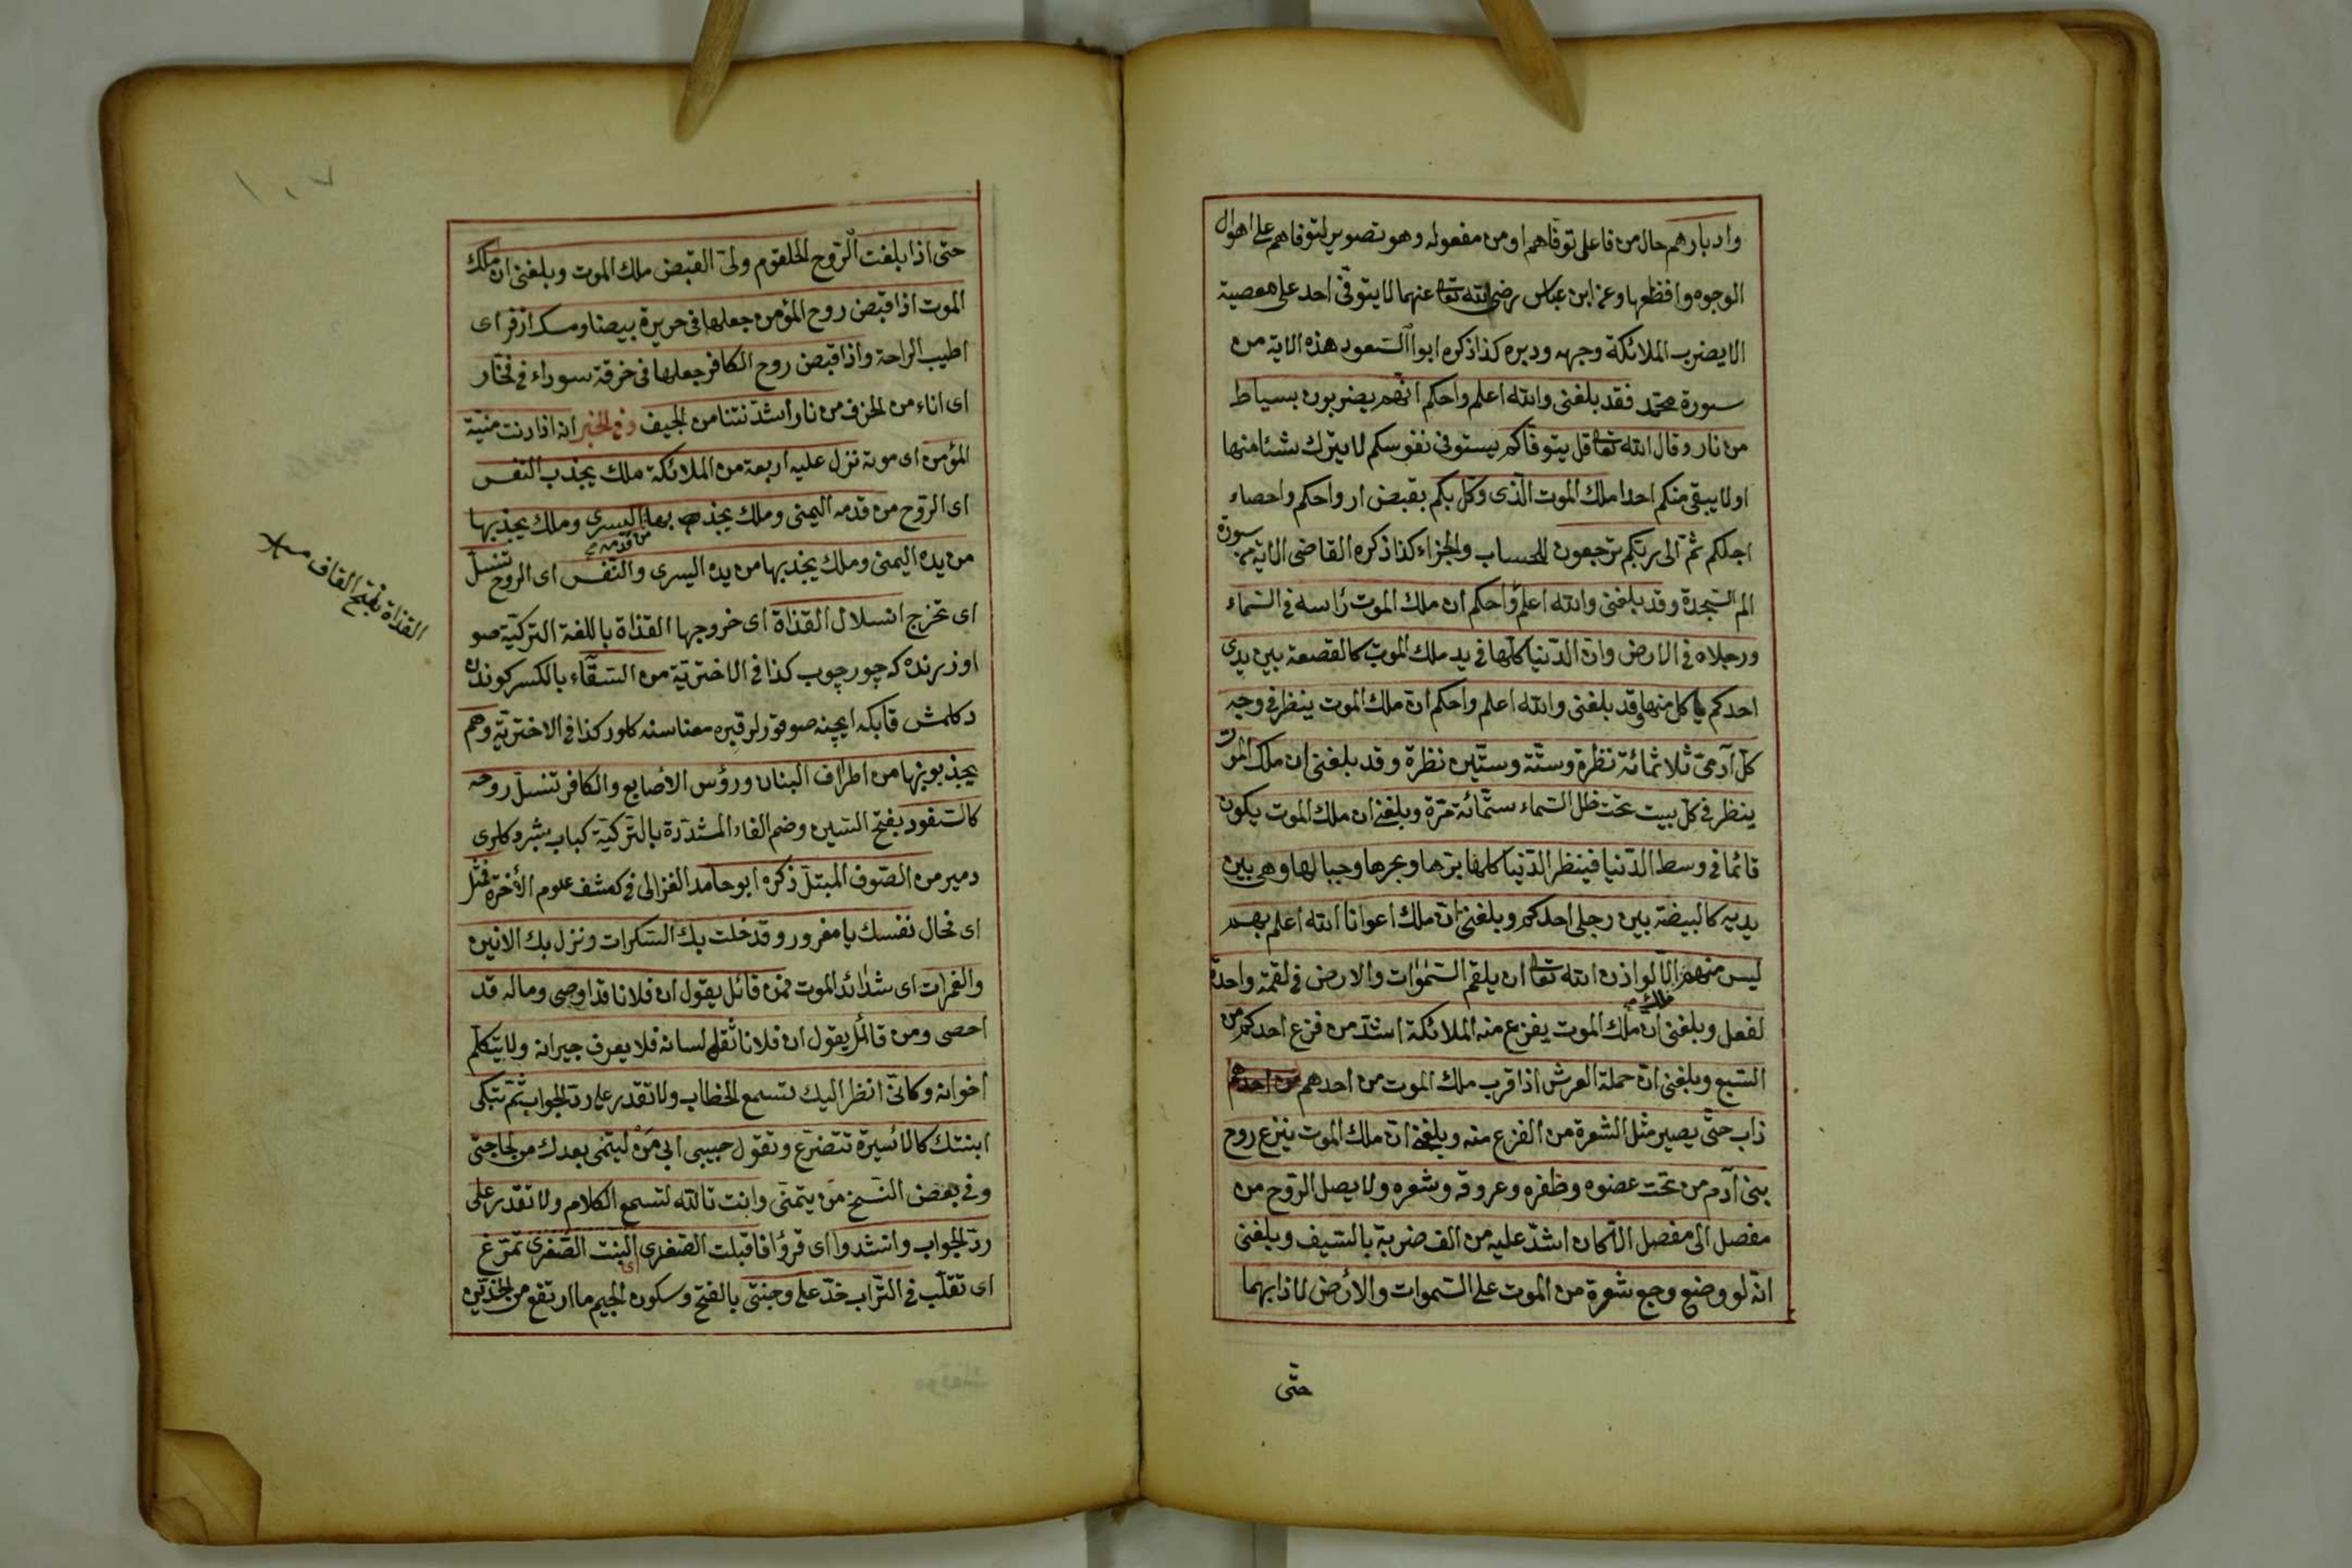 وادبارهم حال من فاعل توفاهم او من مفعوله وهو تصوير لتوفاهم على اهوال
الوجوه وافظعها وعن ابن عباس رضى الله تعالى عنهما لا يتوفى احد على معصية
الا يضرب الملائكة وجهه ودبره كذا ذكره ابوا السعود هذه الاية من
سورة محمد فقد بلغنى والله اعلم واحكم انهم يضربون بسياط
من نار وقال الله تعالى قل يتوفاكم يستوفى نفوسكم لا يترك شئا منها
او لا يبقى منكم احدا ملك الموت الذى وكل بكم بقبض ارواحكم واحصاء
اجلكم ثم الى ربكم ترجعون للحساب والجزاء كذا ذكره القاضى الاية من سورة
الم السجدة وقد بلغنى والله اعلم واحكم ان ملك الموت رأسه فى السماء
ورجلاه فى الارض وان الدنيا كلها فى يد ملك الموت كالقصعة بين يدى
احدكم يا كل منها وقد بلغنى والله اعلم واحكم ان ملك الموت ينظر فى وجه
كل آدمى ثلاثمائة نظرة وستة وستين نظرة وقد بلغنى ان ملك الموت
ينظر فى كل بيت تحت ظل السماء ستمائة مرة وبلغنى ان ملك الموت يكون
قائما فى وسط الدنيا فينظر الدنيا كلها برها وبحرها وجبالها وهى بين
يديه كالبيضة بين رجلى احدكم وبلغنى ان ملك اعوانا الله اعلم بهم
ليس منهم الا لو اذن الله تعالى ان يلقم السموات والارض فى لقمة واحدة
لفعل وبلغنى ان ملك الموت يفزع منه الملائكة اشد من فزع احدكم من
السبع وبلغنى ان حملة العرش اذا قرب ملك الموت من احدهم من احدهم
ذاب حتى يصير مثل الشعرة من الفزع منه وبلغنى ان ملك الموت ينزع روح
بنى آدم من تحت عضوه وظفره وعروقه وشعره ولا يصل الروح من
مفصل الى مفصل الا كان اشد عليه من الف ضربة بالسيف وبلغنى
انه لو وضع وجع شعرة من الموت على السموات والأرض لاذابهما
حتى
١٠٧
حتى اذا بلغت الروح الحلقوم ولى القبض ملك الموت وبلغنى ان ملك
الموت اذا قبض روح المؤمن جعلها فى حريرة بيضا ومسك ازفر اى
اطيب الراحة واذا قبض روح الكافر جعلها فى خرقة سوداء فى فخار
اى اناء من الخزف من نار أشد نتنا من الجيف وفى الخبر انه اذا دنت منية
المؤمن اى موته نزل عليه اربعة من الملائكة ملك يجذب النفس
اى الروح من قدمه اليمنى وملك يجذ بها اليسرى وملك يجذبها
من قدمه
من يده اليمنى وملك يجذبها من يده اليسرى والنفس اى الروح تنسل
اى تخرج انسلال القذاة اى خروجها القذاة باللغة التركية صو
القذاة بفتح القاف
اوزرنده كه چور چوب كذا فى الاخترية من السقاء بالكسر كوندن
دكلمش قابكه ايچنه صو قورلر قيره معناسنه كلور كذا فى الاخترية وهم
يجذبونها من اطراف البنان ورؤس الأصابع والكافر تنسل روحه
كالسفود بفتح السين وضم الفاء المشددة بالتركية كباب بشرد كلرى
دمير من الصوف المبتل ذكره ابو حامد الغزالى فى كشف علوم الأخرة فمثل
اى فحال نفسك يا مغرور وقد خلت بك السكرات ونزل بك الانين
والغمرات اى شدائد الموت فمن قائل يقول ان فلانا قد اوصى وماله قد
احصى ومن قائل يقول ان فلانا ثقل لسانه فلا يعرف جيرانه ولا يتكلم
اخوانه وكانى انظر اليك تسمع الخطاب ولا تقدر على رد الجواب ثم تبكى
ابنتك كالاسيرة تتضرع وتقول حبيبى ابى من ليتمى بعدك من لحاجتى
وفى بعض النسخ من يتمنى وانت تالله لتسمع الكلام ولا تقدر على
رد الجواب وانشدوا اى قرؤا فاقبلت الصغرى اى البنت الصغرى تمرغ
اى تقلب فى التراب خد على وجنتى بالفتح وسكون الجيم ما ارتفع من الخدين